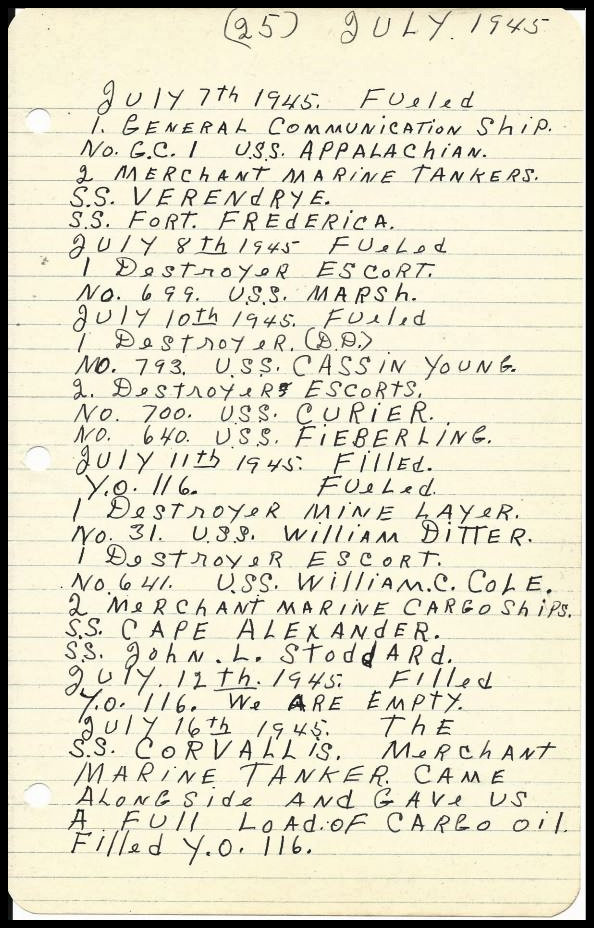 (25) JULY. 1945
JUlY 7th 1945. FUeled
1. GENERAL COMMUNICATION Ship.
No. G.C. 1 U.S.S. APPALAChiAN.
2 MERCHANT MARINE TANKERS.
S.S. VERENdRYE.
S.S. FORT. FREdERICA.
JUlY 8th 1945 FUeled
1 DestroyeR ESCORT.
No. 699. U.S.S. MARSh.
JUlY 10th 1945. FUeled
1 DestroyeR. (D.D.)
No. 793. U.S.S. CASSiN YOUNG.
2. DestroyeRs ESCORTS.
No. 700. U.S.S. CURIER.
No. 640. U.S.S. FiEBERLiNG.
JUlY 11th 1945. FillEd.
Y.O. 116. FUeLed.
1 DestroyeR MiNE LAyeR.
No. 31. U.S.S. WilliAM DiTTER.
1 DestroyeR ESCORT.
No. 641. U.S.S. WilliAM.C. COLE.
2 MeRChANT MARINE CARGO ShiPS.
S.S. CAPE ALEXANdER.
S.S. JohN. L. StoddARd.
JUlY. 12th. 1945. Filled
Y.O. 116. We ARE EMPTY.
JUlY 16th 1945. ThE
S.S. CORVALLiS. MeRChANT
MARiNE TANKER. CAME
ALONGSide ANd GAVe US
A FUll LOAd.OF CARGO Oil.
Filled Y.O. 116.